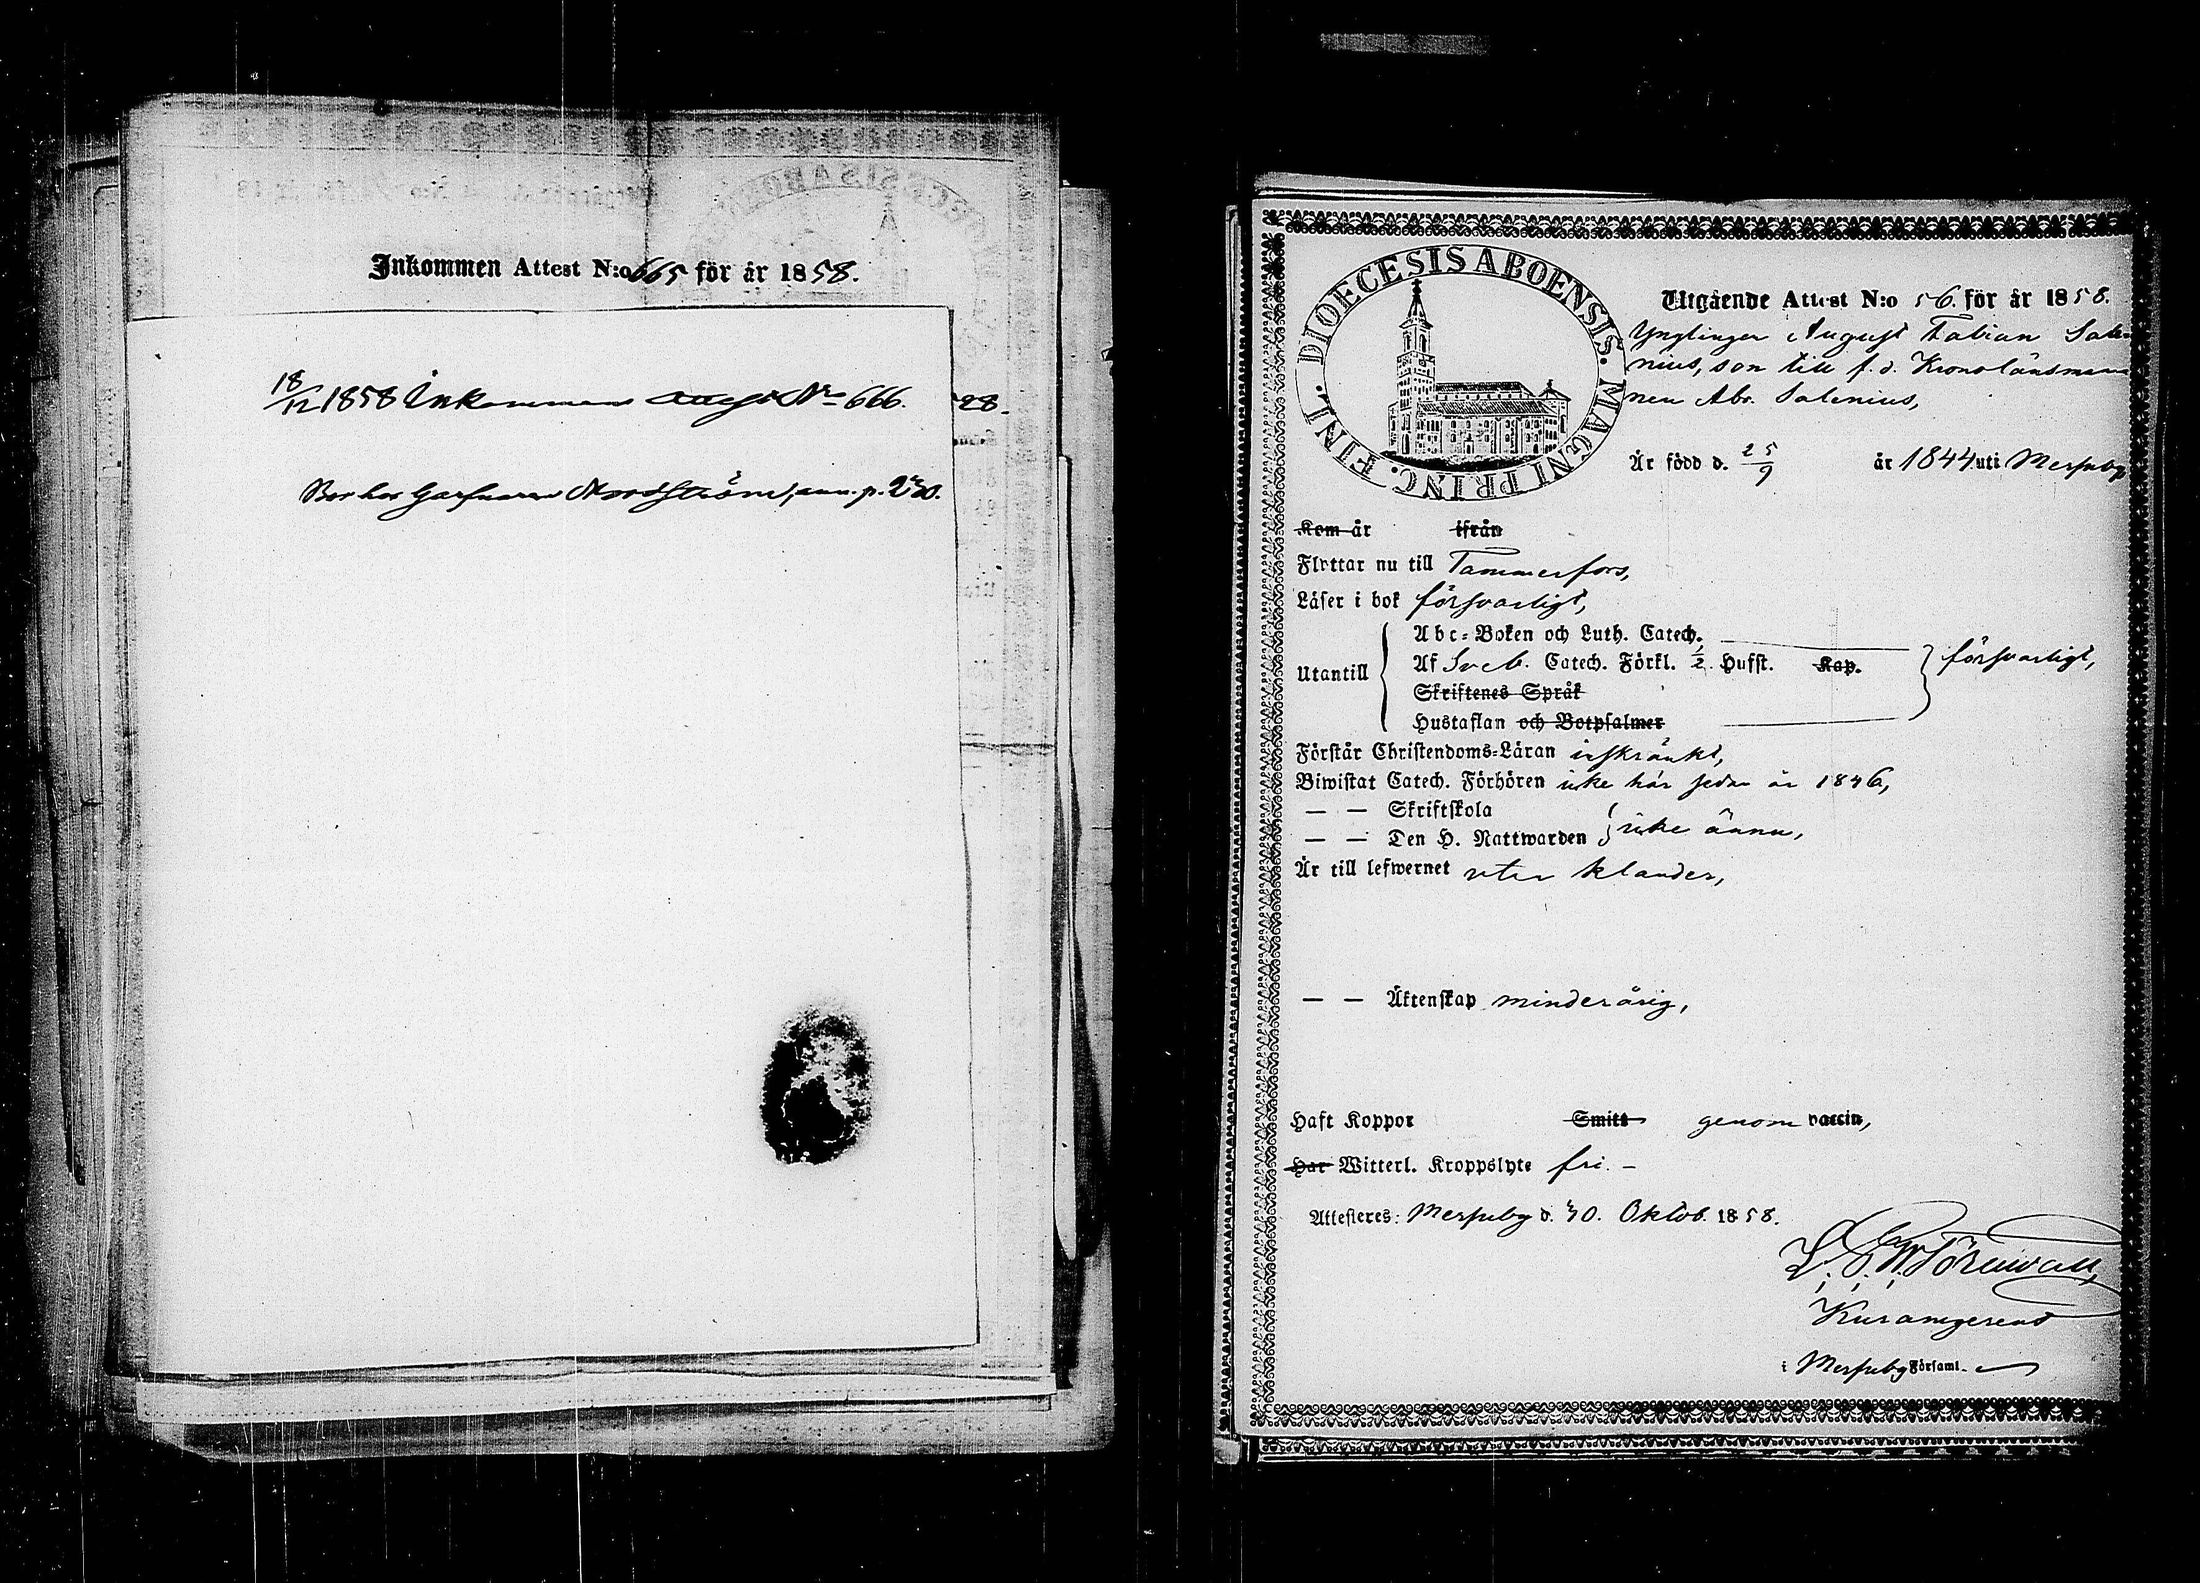 Inkommen Attest N:o 665 för år 1858.
18/12 1858 Inkommen attest No 666.
Bor hos Garfvaren Nordström, ann. p. 230.
28.
DIOECESIS ABOENSIS. MAGNI PRINC. FINL.
Utgående Attest N:o 56. för år 1858.
Ynglingen August Fabian Sale-
nius, son till f. d. Kronolänsman-
nen Abr. Salenius,
Är född d. 25/9 år 1844 uti Messuby
Kom år ifrån
Flyttar nu till Tammerfors,
Läser i bok försvarligt,
Utantill
Abc-Boken och Luth. Catech.
Af Sveb. Catech. Förkl. ½. Hufst. Kap. försvarligt,
Skriftenes Språk
Hustaflan och Botpsalmer
Förstår Christendoms-Läran inskränkt,
Biwistat Catech. Förhören icke här sedan år 1846,
— — Skriftskola
— — Den H. Nattwarden icke ännu,
Är till lefwernet utan klander,
— — Äktenskap minderårig,
Haft Koppor Smitt genom vaccin,
Har Witterl. Kroppslyte fri. –
Attesteres: Messuby d. 30. Oktob. 1858.
Törnwall,
Kuramgerens
i Messuby Församl.